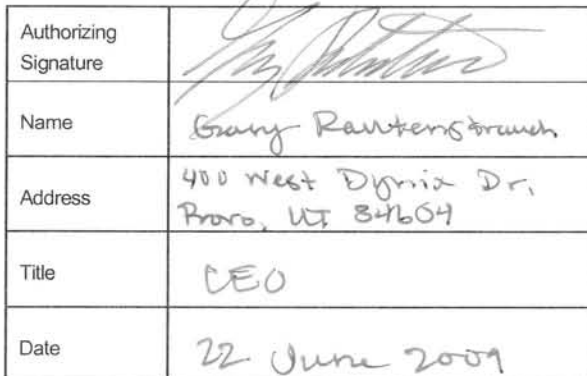 Authorizing
Signature
Name Gary Rautenstrauch
Address 400 West Dynix Dr.
Provo, UT 84604
Title CEO
Date 22 June 2009